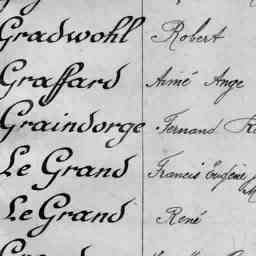 Gradwohl Robert
Graffard Aimé Ange
Graindorge Fernand
Le Grand Francis Eugène
Le Grand René